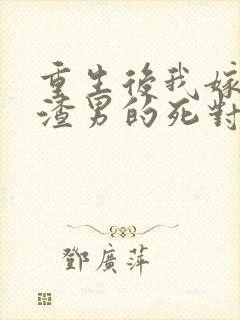 重生後我嫁
渣男的死對
鄧廣萍